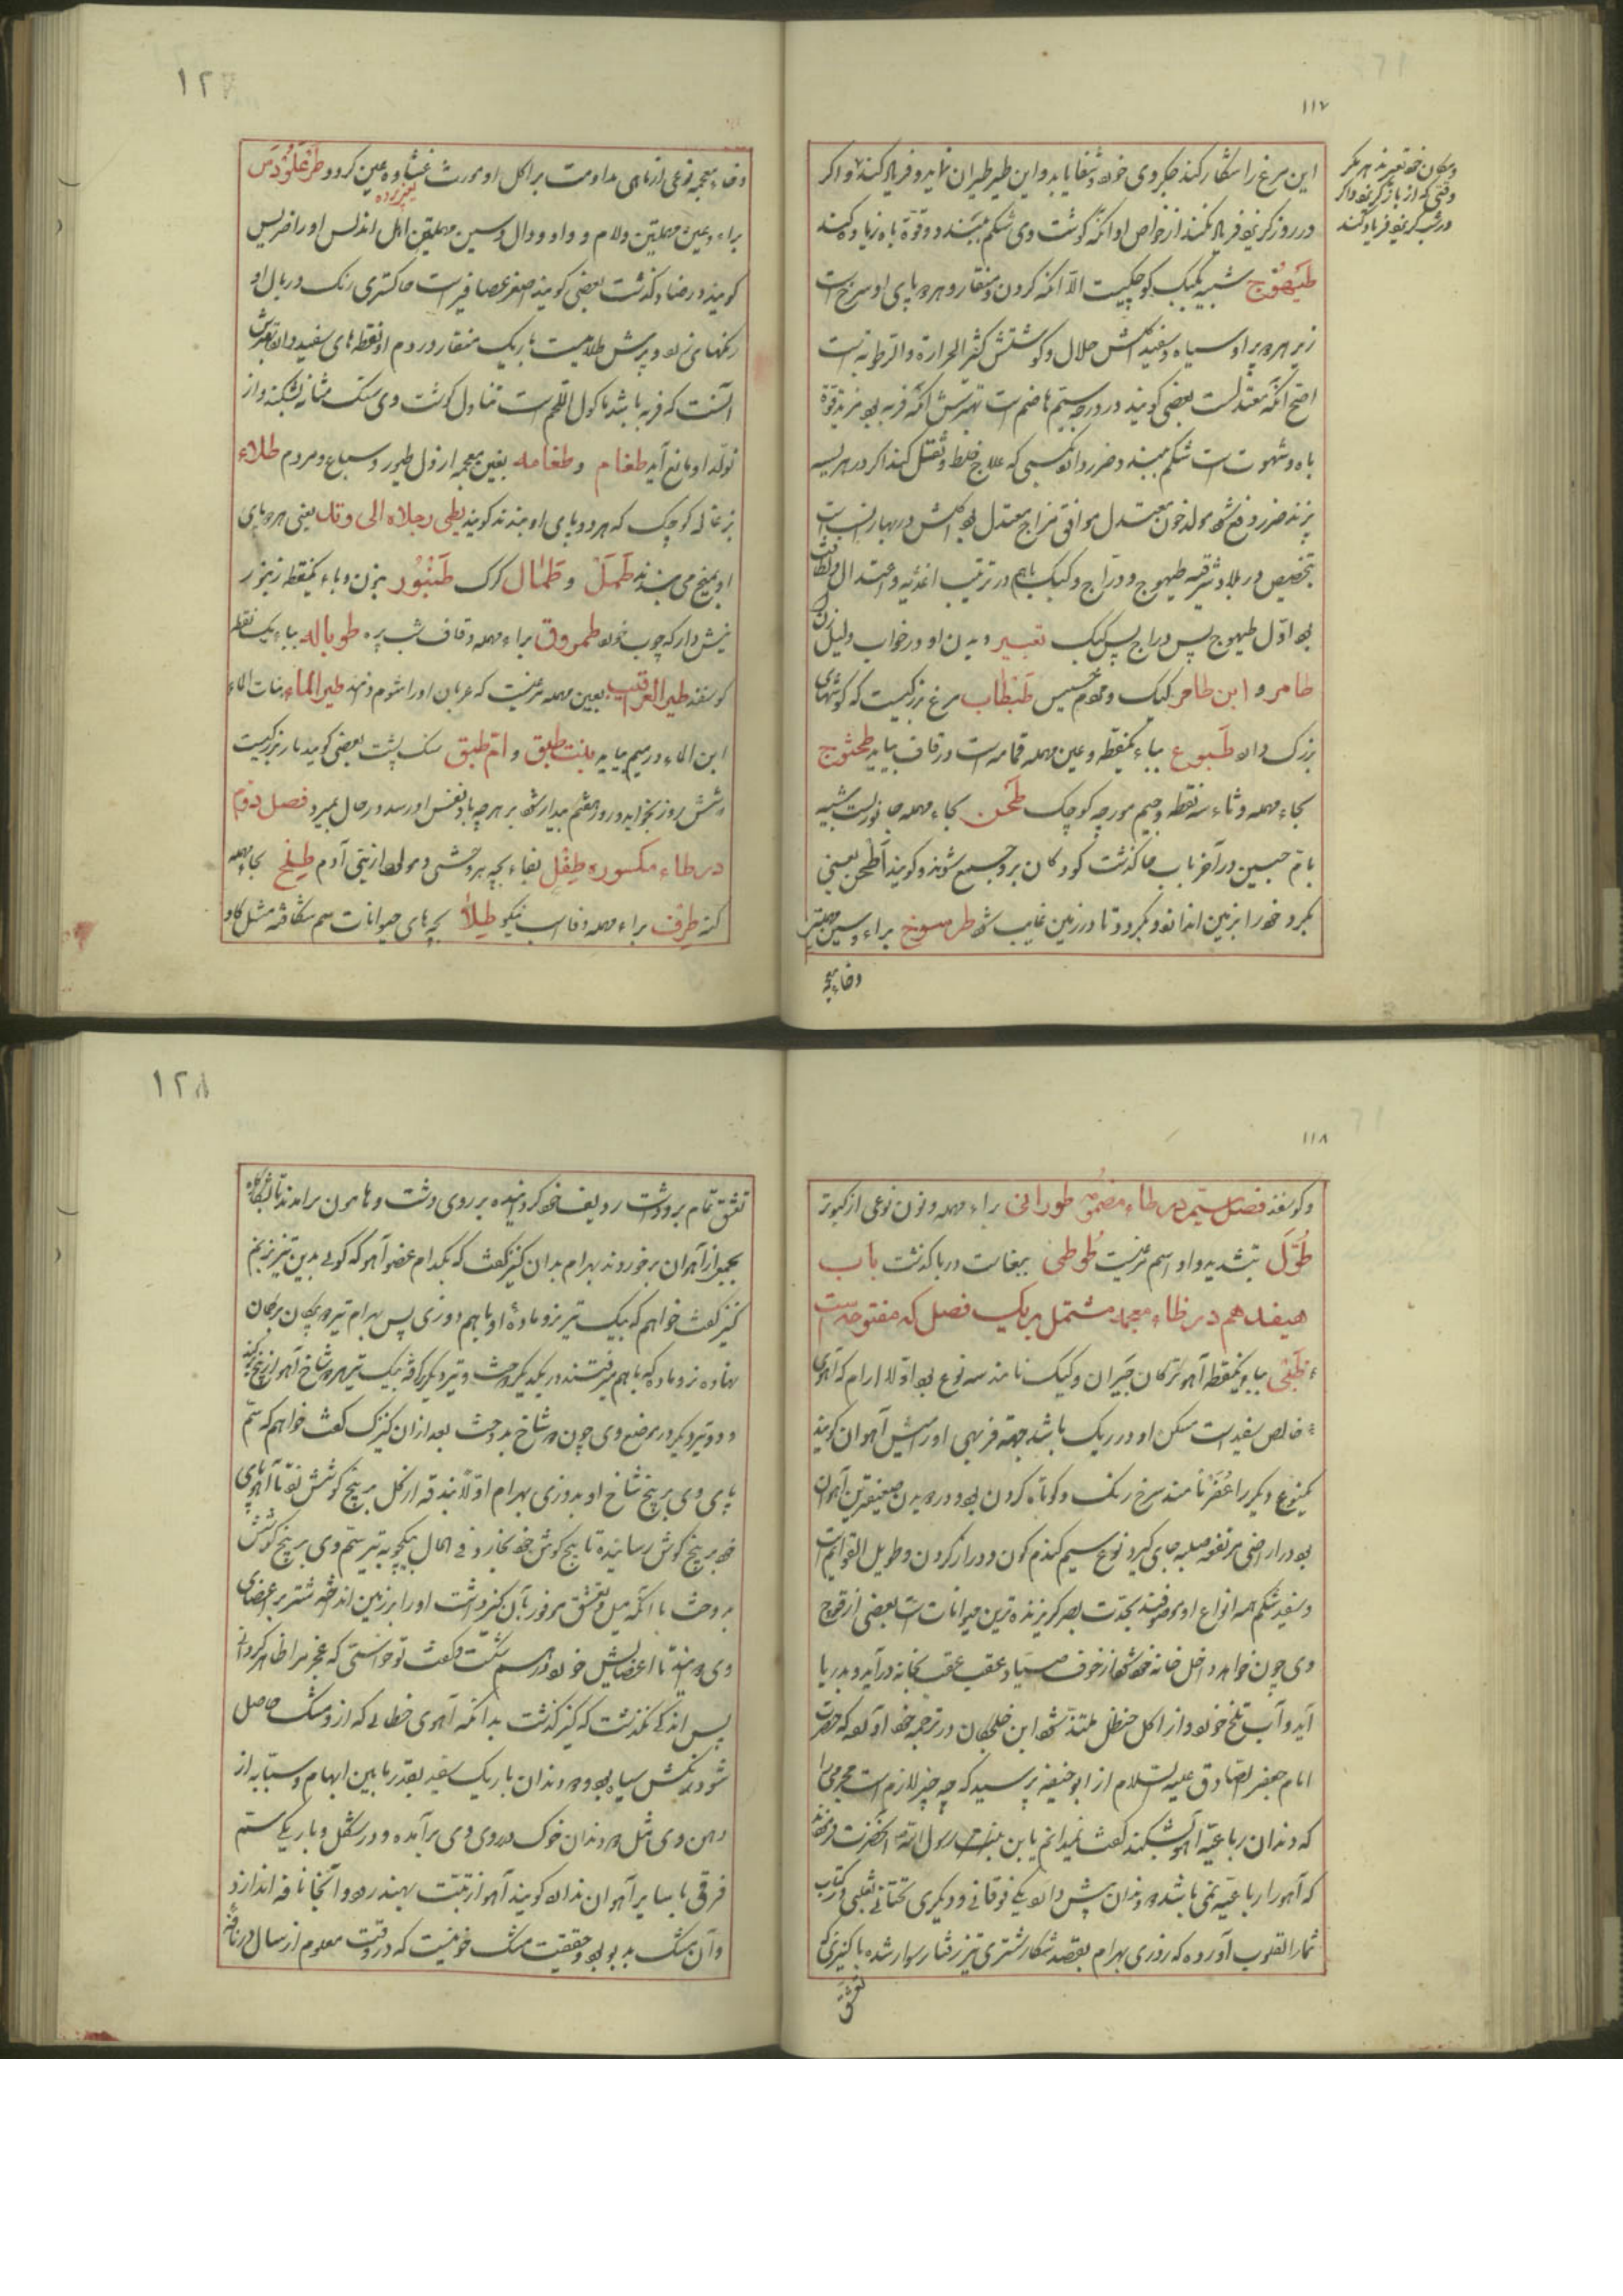 ۱۱۷
این مرغ را شکار کند جگر وی خورد شفا یابد و این طیر طیران نماید و فریاد کند و اکر
در روز کریزد فریاد نکند از خواص او آنکه گوشت وی شکم ببندد و قوّة باه زیاده کند
طَیهُوج شبیه بکبک کوچکیست الاّ آنکه کردن و منقار و هر دو پای او سرخ است
زیر هر دو پر او سیاه و سفید اکلش حلال و کوشتش کثیر الحرارة والرطوبه است
اصح آنکه معتدلست بعضی کویند در درجه سیّم هاضم است بهترش آنکه فربه بود مزید قوّة
باه و شهوت است شکم ببندد و ضرر دارد بکسی که علاج غلط و ثقل کند اکر در هریسه
پزند ضرر دفع شود مولد خون معتدل موافق مزاج معتدل بود اکلش در بهار انسب است
بتخصیص در بلاد شرقیه طیهوج و درّاج و کبک باهم در ترتیب اغذیه و اعتدال و لطافت
بود اوّل طیهوج پس درّاج پس کبک تعبیر دیدن او در خواب دلیل زن
طامر و ابن طامر کیک و مردم خسیس طَنبطاب مرغ بزرکیست که کوشهای
بزرک دارد طَبوع بباء یکنقطه و عین مهمله قمامه است در قاف بیاید طحثوج
بحاء مهمله و ثاء سه نقطه و جیم مورچه کوچک طَحن بحاء مهمله جانوریست شبیه
بامّ حبین در آخر باب حا کذشت کودکان بر وجمع شوند و کویند اَطحن یعنی
بکرد خود را بزمین اندازد و بکردد تا در زمین غایب شود طرسوخ براء و سین مهملتین
وخاء معجمه
و مکان خود تغییر ندهد مکر
وقتی که از باز کریزد و اکر
در شب کریزد فریاد کند
۱۲
وخاء معجمه نوعی از ماهی مداومت بر اکل او مورث غشاوه عین کردد طَرغَلُودَس
براء و عین مهملتین و لام و واو و دال و سین مهملتین اهل اندلس او را ضریس
کویند در ضاد کذشت بعضی کویند اصغر عصافیر است خاکستری رنک در بال او
رنکهای زرد و پرش طلاییست باریک منقار و در دم او نقطه های سفید دارد بهترش
آنست که فربه باشد ماکول اللحم است تناول کوشت وی سنک مثانه بشکند و از
تولّد او مانع آید طغام و طغامه بغین معجمه ارذل طیور و سباع و مردم طلاء
بزغاله کوچک که هر دو پای او بندند کویند یطی رجلاه الی وتد یعنی هر دو پای
او بمیخ می بندند طَمَلَ و طَملال کرک طَنبُور بنون و باء یکنقطه زنبور
نیش دار که چوب خورد طمروق براء مهمله و قاف شب پره طوباله بباء یک نقطه
کوسفند طیر العراقیب بعین مهمله مرغیست که عربان او را شوم دانند طیر الماء بنات الماء
ابن الماء در میم بیاید بنت طبق و امّ طبق سنک پشت بعضی کویند مار بزرکیست
شش روز بخوابد و روز هفتم بیدار شود بر هر چه باد نفس او رسد در حال بمیرد فصل دوّم
در طاء مکسوره طِفل بفاء بچه هر وحشی و مولود از بنی آدم طِلح بحاء مهمله
کنه طِرف براء مهمله و فا اسب نیکو طِلأ بچه های حیوانات سم شکافته مثل کاو
۱۱۸
و کوسفند فصل سیّم در طاء مضموم طورانی براء مهمله و نون نوعی از کبوتر
طُوّل بتشدید واو اسم مرغیست طُوطی ببغاست در با کذشت باب
هیفدهم در ظاء معجمه مشتمل بر یک فصل که مفتوحه است
ظَبی بباء یکنقطه آهو ترکان جَیران و کیک نامند سه نوع بود اوّل ارام که آهوی
خالص سفید است مسکن او در ریک باشد بجهة فربهی او را میش آهوان کویند
یکنوع دیکر را عُفر نامند سرخ رنک و کوتاه کردن بود و در دویدن ضعیفترین آهوان
بود در اراضی مرتفعه صلبه جای کیرد نوع سیم کندم کون و دراز کردن و طویل القوایم است
و سفید شکم همه انواع او موصوفند بحدّت بصر کریزنده ترین حیوانات است بعضی از قوچ
وی چون خواهد داخل خانه خود شود از خوف صیّاد عقب عقب بخانه درآید و بدریا
آید و آب تلخ خورد و از اکل حنظل ملتذّ شود ابن خلکان در ترجمه خود آورده که حضرت
امام جعفر الصّادق علیه السّلام از ابو حنیفه پرسید که چه چیز لازم است محرمی را
که دندان رباعیّه آهو بشکند کفت نمیدانم یا بن بنت رسول الله آنحضرت فرمود
که آهو را رباعیّه نمی باشد دو دندان پیش دارد یکی فوقانی و دیکری تحتانی ثعلبی در کتاب
ثمار القلوب آورده که روزی بهرام بقصد شکار شتری تیز رفتار سوار شده با کنیزکی که
تعشّق
۱۲۸
تعشّق تمام بر و داشت ردیف خود کردانیده بر روی دشت و هامون برآمدند تا بشکارکاه
بجمعی از آهوان برخوردند بهرام بدان کنیز کفت که بکدام عضو آهو که کوئی بدین تیر بزنم
کنیز کفت خواهم که بیک تیر نر و ماده او باهم دوزی پس بهرام تیر دو پیکان بر کمان
نهاده نر و ماده که باهم میرفتند در یکدیکر دوخت و تیر دیکر کرفته بیک تیر هر دو شاخ آهو از بیخ برکند
و دو تیر دیکر در موضع وی چون دو شاخ بدوخت بعد از ان کنیزک کفت خواهم که سمّ
پای وی بر بیخ شاخ او بدوزی بهرام اوّلا بندقه از کل بر بیخ کوشش زد تا آهو پای
خود بر بیخ کوش رسانیده تا بیخ کوش خود بخارد فی الحال بیکچوبه تیر سم وی بر بیخ کوشش
بدوخت با آنکه میل و تعشق موفور بآن کنیز داشت او را بر زمین انداخته شتر بر اعضای
وی دوانید تا اعضایش خورد در هم شکست و کفت تو خواستی که عجز مرا ظاهر کردانی
پس اندکی نکذشت که کنیز کذشت بدانکه آهوی خطائی که از و مشک حاصل
شود رنکش سیاه بود و دو دندان باریک سفید بقدر ما بین ابهام و سبّابه از
دهن وی مثل دو دندان خوک در روی وی برآمده و در شکل و باریکی سم
فرقی با سایر آهوان ندارد کویند آهو از تبّت بهند رود و آنجا نافه اندازد
و آن مشک بد بو بود و حقیقت مشک خونیست که در وقت معلوم از سال در نافه